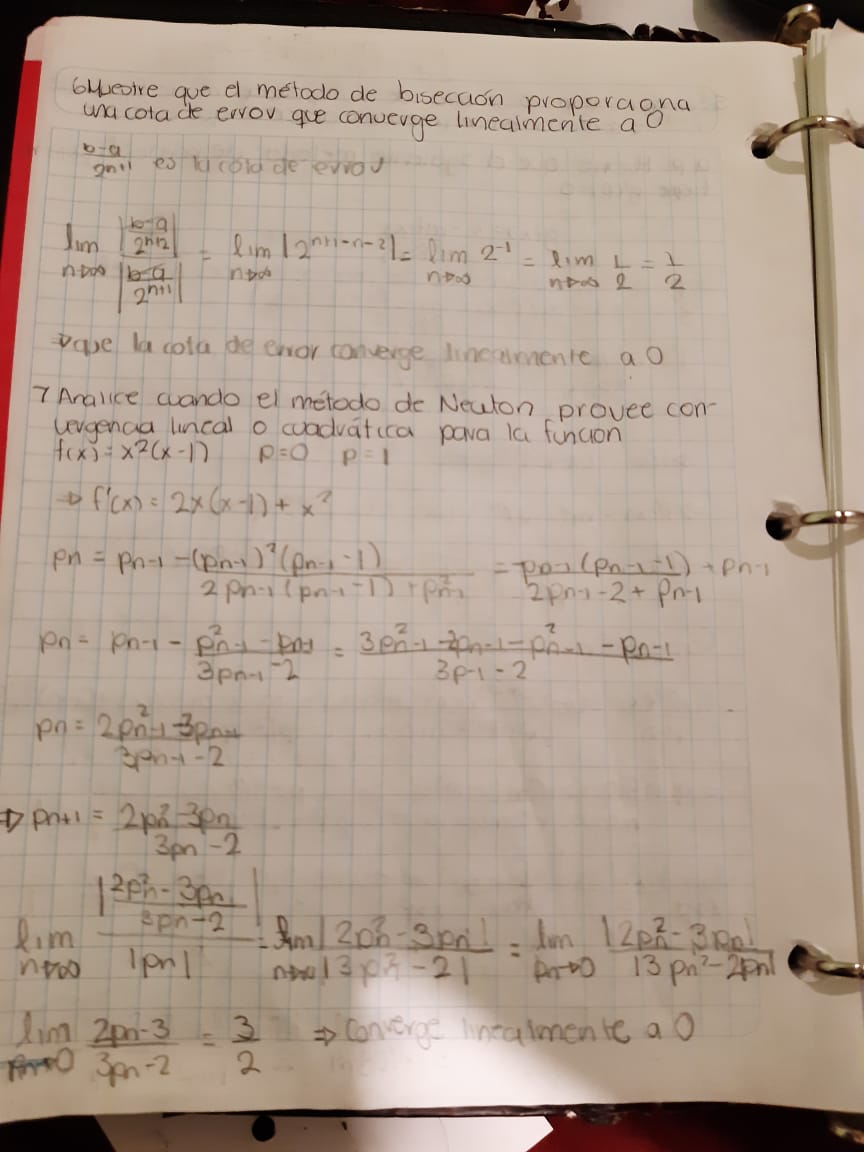 6 Muestre que el método de bisección proporciona
una cota de error que converge linealmente a 0
b-a / 2^{n+1} es la cota de error
lim n→∞ |b-a / 2^{n+2}| / |b-a / 2^{n+1}| = lim n→∞ |2^{n+1-n-2}| = lim n→∞ 2^{-1} = lim n→∞ 1/2 = 1/2
⇒ que la cota de error converge linealmente a 0
7 Analice cuando el método de Newton provee con-
vergencia lineal o cuadrática para la funcion
f(x) = x²(x-1) p=0 p=1
⇒ f'(x) = 2x(x-1) + x²
pn = pn-1 - (pn-1)²(pn-1 - 1) / 2pn-1(pn-1 - 1) + p²n-1 = pn-1(pn-1 - 1) / 2pn-1 - 2 + pn-1 + pn-1
pn = pn-1 - p²n-1 - pn-1 / 3pn-1 - 2 = 3p²n-1 - 2pn-1 - p²n-1 - pn-1 / 3p-1 - 2
pn = 2p²n-1 - 3pn-1 / 3pn-1 - 2
⇒ pn+1 = 2p²n - 3pn / 3pn - 2
lim n→∞ |2p²n - 3pn / 3pn - 2| / |pn| = lim n→∞ |2p²n - 3pn| / |3p²n - 2| = lim pn→0 |2p²n - 3pn| / |3pn² - 2pn|
lim pn→0 2pn - 3 / 3pn - 2 = 3/2 ⇒ Converge linealmente a 0